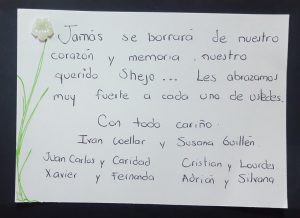 Jamás se borrará de nuestro
corazón y memoria. nuestro
querido Shejo... Les abrazamos
muy fuerte a cada uno de ustedes.
Con todo cariño.
Ivan Cuellar y Susana Guillén.
Juan Carlos y Caridad Cristian y Lourdes
Xavier y Fernanda Adrián y Silvana